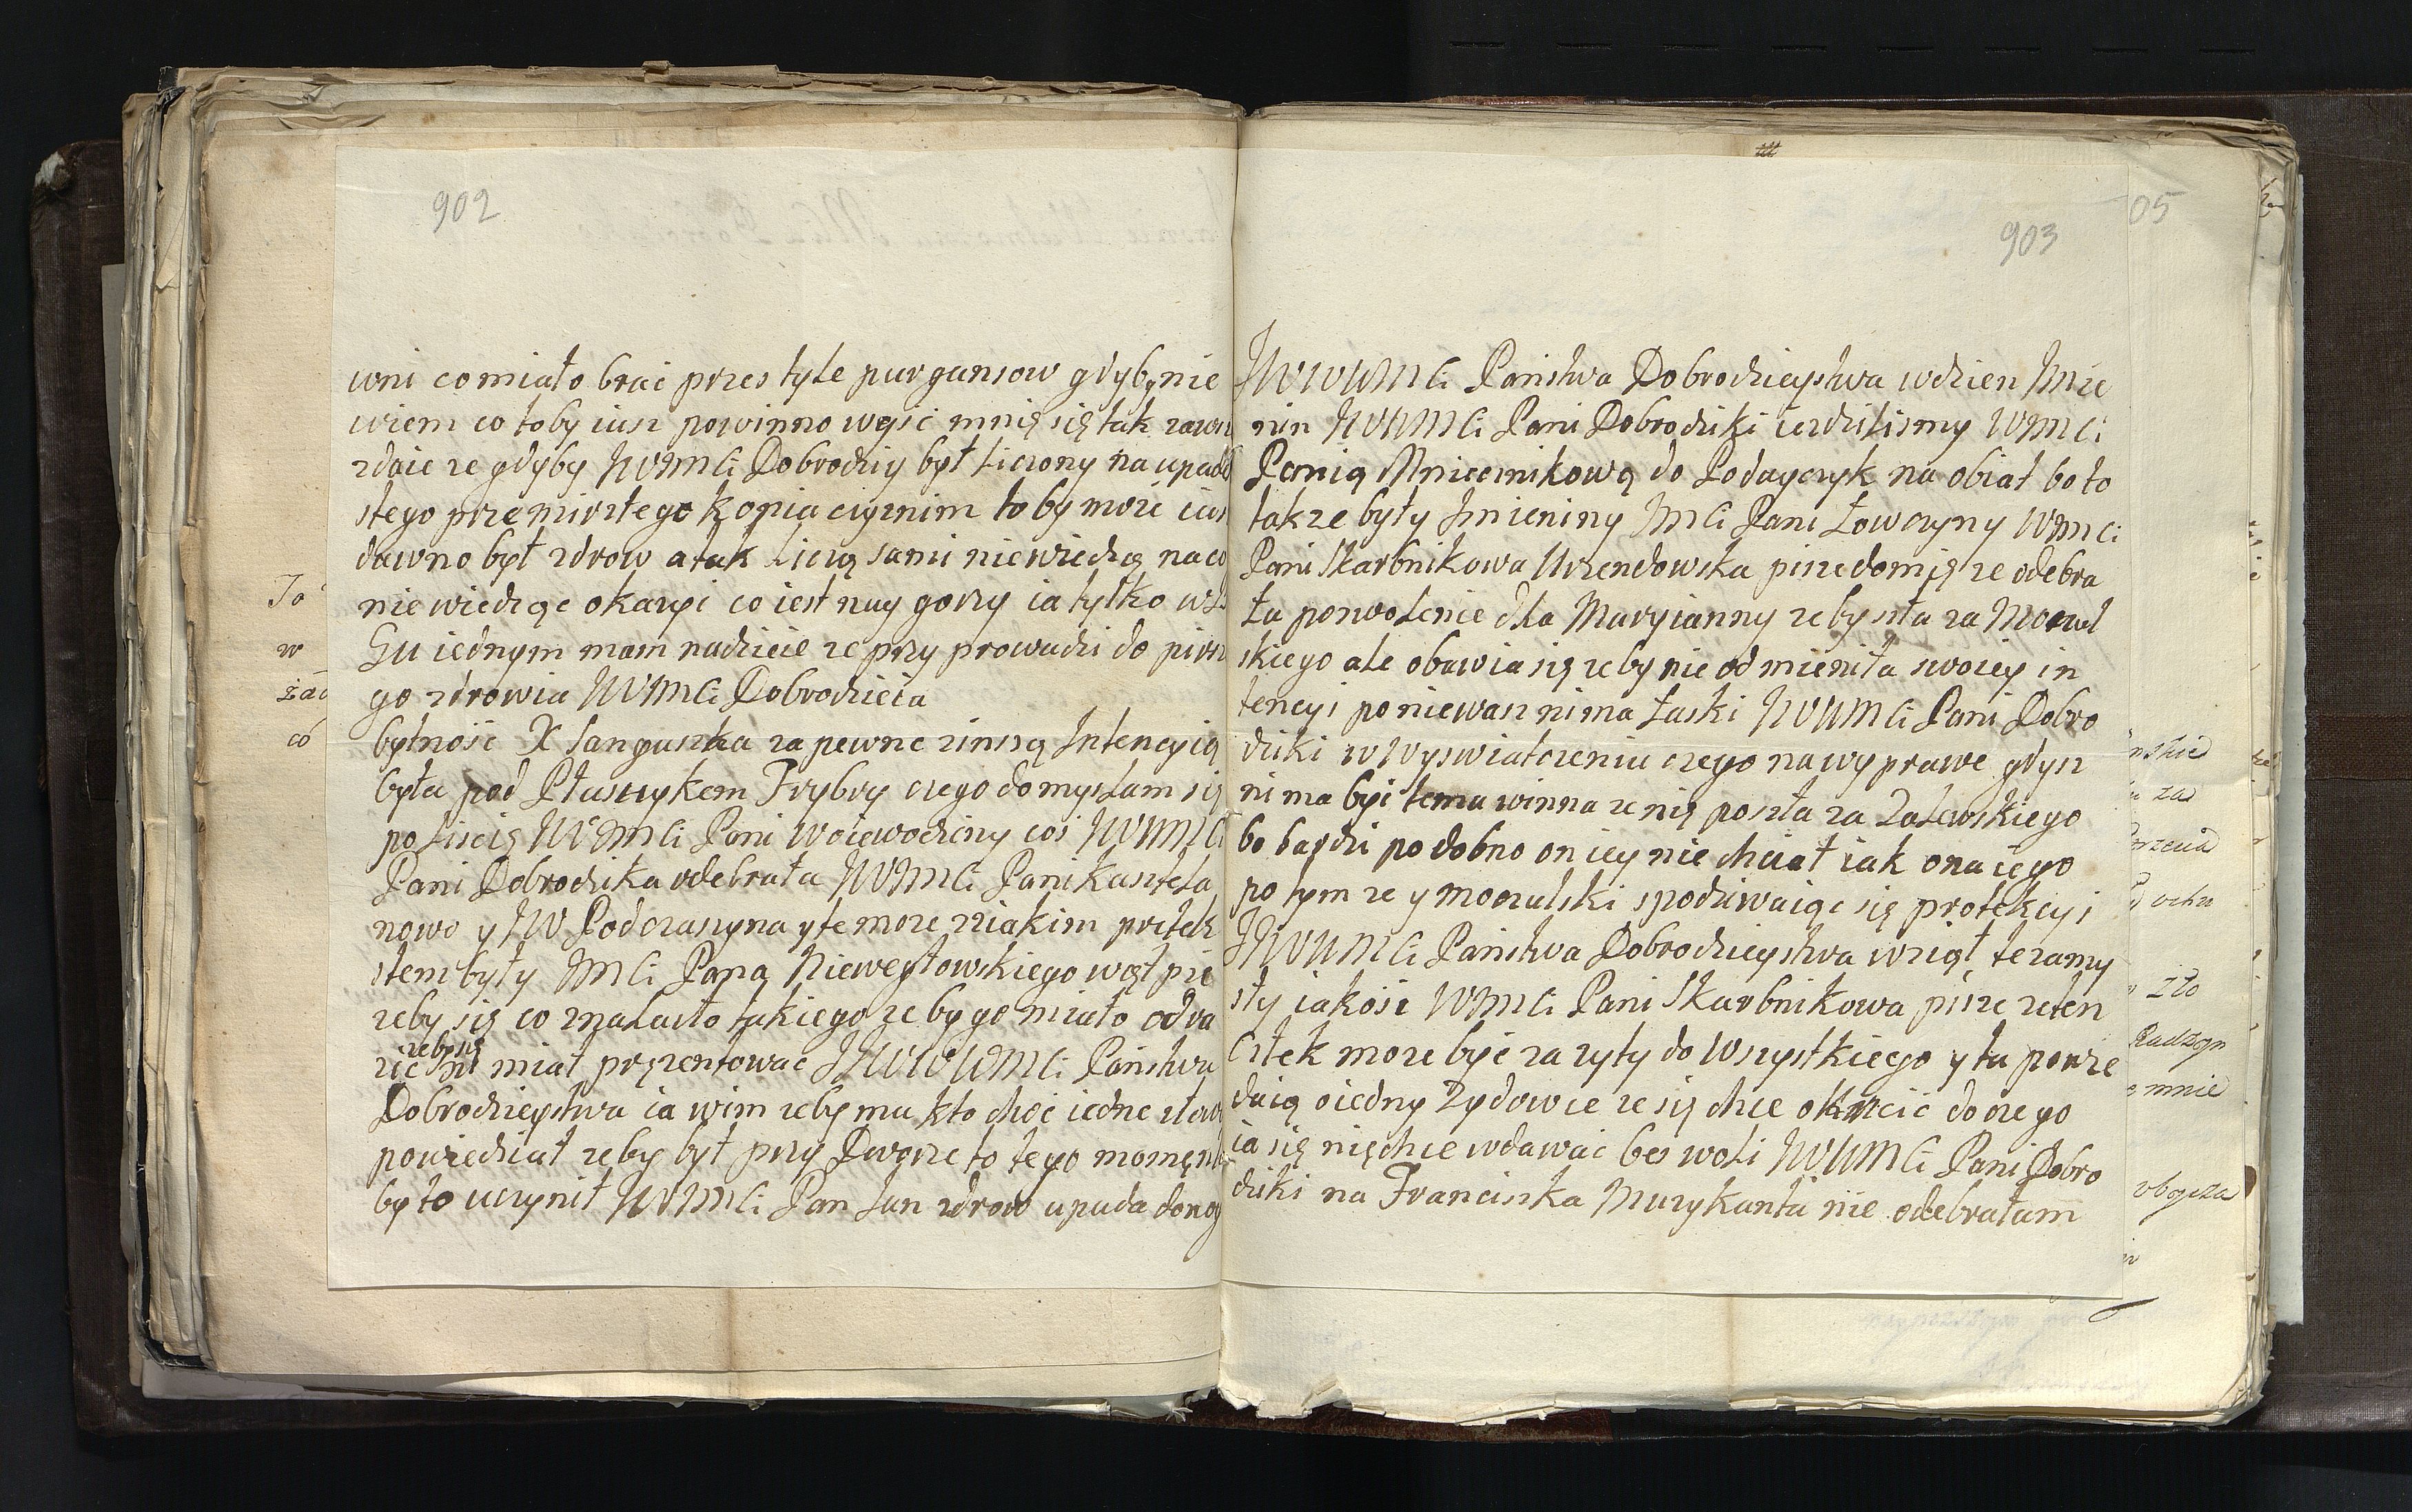 902
wni co miało brać przes tyle purgansow gdyby nie
wiem co toby iusz powinno wyść mnię się tak zaw
zdaie ze gdyby JWMCi Dobrodziy był liczony na upad
stego przemirzłego kopia cięznim to by może ius
dawno był zdrow a tak liczą sami niewiedzą naco
nie wiedząc okazyi co iest nay gorzy ia tylko w
Gu iednym mam nadzieie ze przy prowadzi do pirsz
go zdrowia JWMCi Dobrodzieia
bytność X Sanguszka zapewne zinszą Intencyią
była pod Płaszczykem Frybry czego domyslam się
po liscię JWMCi Pani Woiewodziny coś JWMCi
Pani Dobrodzika odebrała JWMCi Pani Kasztela
nowo y JW Podczaszyna y te moze ziakim pretek
stem były JMCi Pana Niewegłowskiego wąt pie
zeby się co znalazło takiego ze by go miało odra
zić zeby się ni miał pręzentować JJWWWMCi Państwu
Dobrodzieystwu ia wim zeby mu kto choć iedne słow
powiedział zeby był przy Dworze to tego momęn
by to uczynił JWMCi Pan Jan zdrow upada do nog
903
JJWWWMCi Państwa Dobrodzieystwa wdzien Imie
nin JWWMCi Pani Dobrodziki iezdzilismy WMCi
Panią Mniecznikową do Podayczyk na obiat bo to
takze były Imieniny JMCi Pani Łowczyny WMCi
Pani Skarbnikowa Urzendowska pisze do mię ze odebra
ła pozwolenie dla Maryianny zeby szła za Moczul
skiego ale obawia się zeby nie odmieniła swoiey in
tencyi poniewasz ni ma Łaski JWWMCi Pani Dobro
dziki w Wyswiatczeniu czego na wyprawe gdysz
ni ma byi temu winna ze nię poszła za Zalewskiego
bo bardzi podobno on iey nie chciał iak ona iego
po tym ze y moczulski spodziwaiąc się protekcyi
JJWWMCi Państwa Dobrodzieystwa wziął te zamy
sły iakośc WMCi Pani Skarbnikowa pisze ze ten
Człek moze być zazyty do Wszystkiego y tu powie
daią oiedny Zydowce ze się chce okrzcić do czego
ia się niechce wdawać bes woli JWWMCi Pani Dobro
dziki na Franciszka Muzykanta nie odebrałam
05
To
w
żad
có